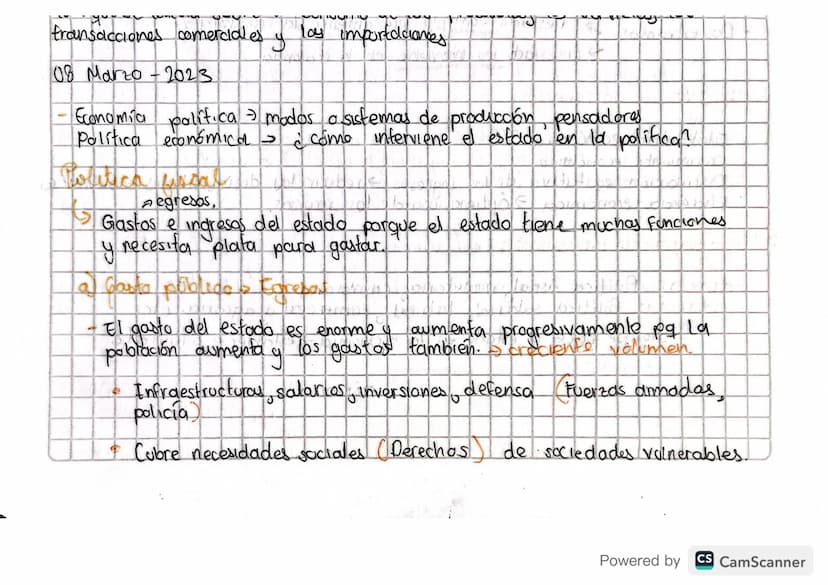 transacciones comerciales y las importaciones
08 Marzo - 2023
- Economía política → modos o sistemas de producción, pensadores
Política económica → ¿cómo interviene el estado en la política?
Política fiscal
→ egresos.
↳ Gastos e ingresos del estado porque el estado tiene muchas funciones
y necesita plata para gastar.
a) Gasto público → Egresos
- El gasto del estado es enorme y aumenta progresivamente pq la
población aumenta y los gastos también. → creciente volumen.
• Infraestructuras, salarios, inversiones, defensa (Fuerzas armadas,
policía)
• Cubre necesidades sociales (Derechos) de sociedades vulnerables.
Powered by CS CamScanner